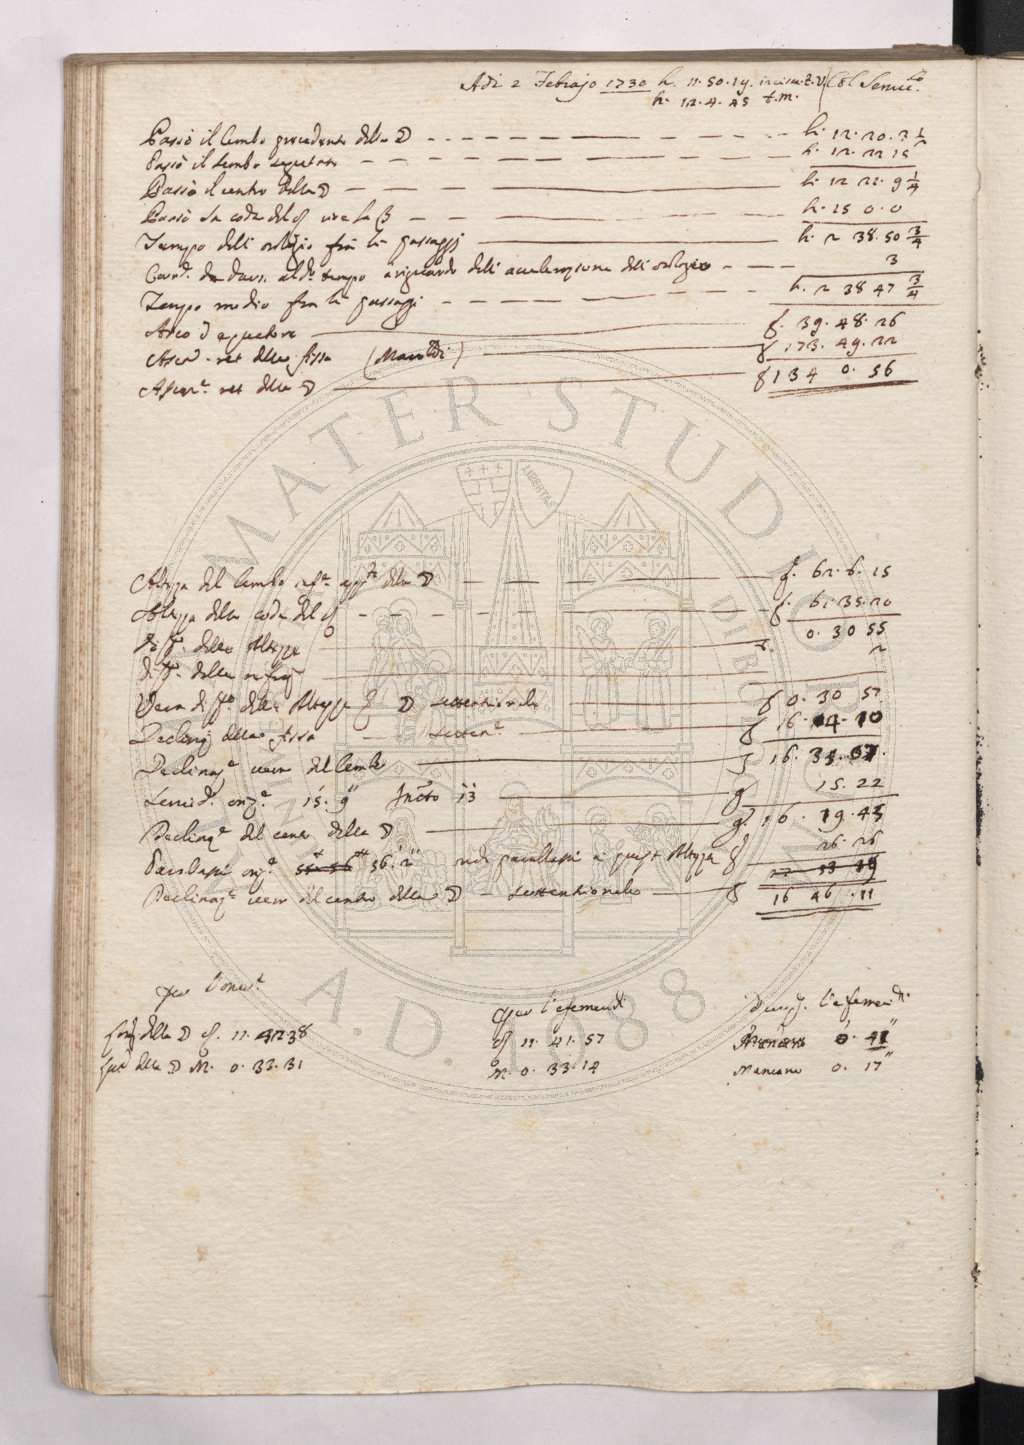 Adì 2 Febrajo 1730 h. 11. 50. 19. t. v. Col Semic.lo
h. 12. 4. 45 t. m.
Passò il lembo precedente della ☽ h. 12. 20. 3 1/2
Passò il lembo seguente h. 12. 22 15
Passò il centro della ☽ h. 12 22. 9 1/4
Passò la coda del ♌ h. 15 0. 0
Tempo dell' orologio frà li passaggi h. 2 38. 50 3/4
al d.o tempo a riguardo dell' accelerazione dell' orologio 3
Tempo medio frà li passaggi h. 2 38 47 3/4
Arco d'equatore g. 39. 48. 26
Ascen. ret della fissa (Maraldi) g 173. 49. 22
Ascen.e ret della ☽ g 134 0. 56
Altezza del lembo della ☽ g. 62. 6. 15
Altezza della coda del ♌ g. 61. 35. 20
Diff.a delle Altezze 0. 30 55
Diff.a della refraz 2
Vera diff.a delle Altezze ☽ settentrionale g 0. 30 57
Declinaz della fissa setten.e g 16. 04. 10
Declinaz.e vera del lembo g 16. 35. 07.
Semid. oriz.e 15. 9" 13 15. 22
Declinaz.e del centro della ☽ g. 16. 19. 45
Parallassi oriz.e 56' 2" parallassi a quest' Altezza g 26. 26
Declinaz.e vera del centro della ☽ settentrionale g 16 46. 11
per l'efemeridi
per l'efemeridi
Long della ☽ ♌. 11. 42 38
♌ 11. 41. 57
0. 41"
Lat della ☽ M. 0. 33. 31
M. 0. 33. 14
Mancano 0. 17"
ALMA MATER STUDIORUM
A.D. 1088
LIBERTAS